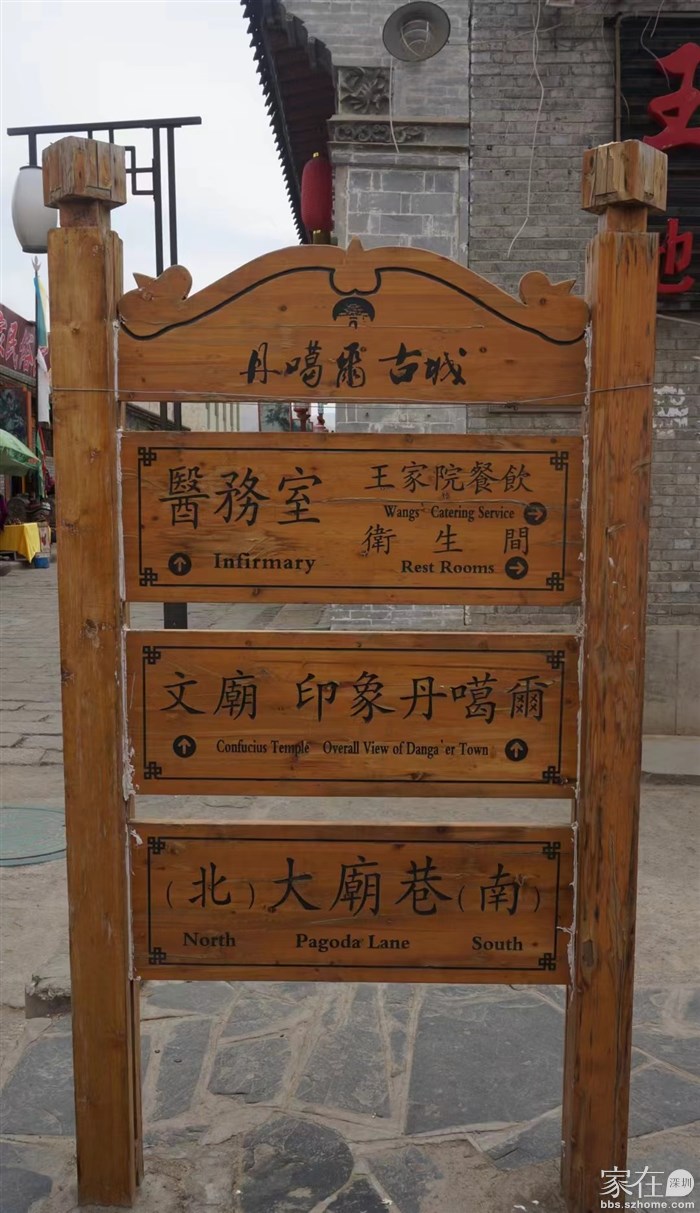 丹噶爾古城
醫務室
Infirmary
王家院餐飲
Wangs' Catering Service
衛生間
Rest Rooms
文廟 印象丹噶爾
Confucius Temple Overall View of Danga'er Town
(北)大廟巷(南)
North Pagoda Lane South
王
地
家在深圳
bbs.szhome.com